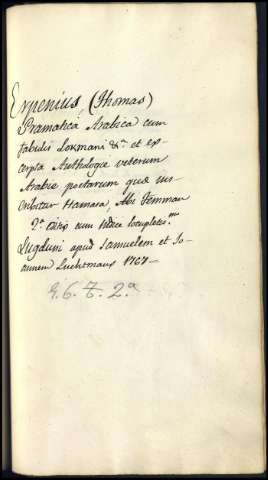 Erpenius, (Thomas)
Gramatica Arabica cum
fabulis Lokmani &.ª et ex-
cerpta Anthologiæ veterum
Arabiæ poetarum quæ ins-
cribitur Hamasa, Abi Temman
2.ª editio cum indice locupletis.mo
Lugduni apud Samuelem et Jo-
annem Luchtmans 1767-
9. 6. 7. 2.ª